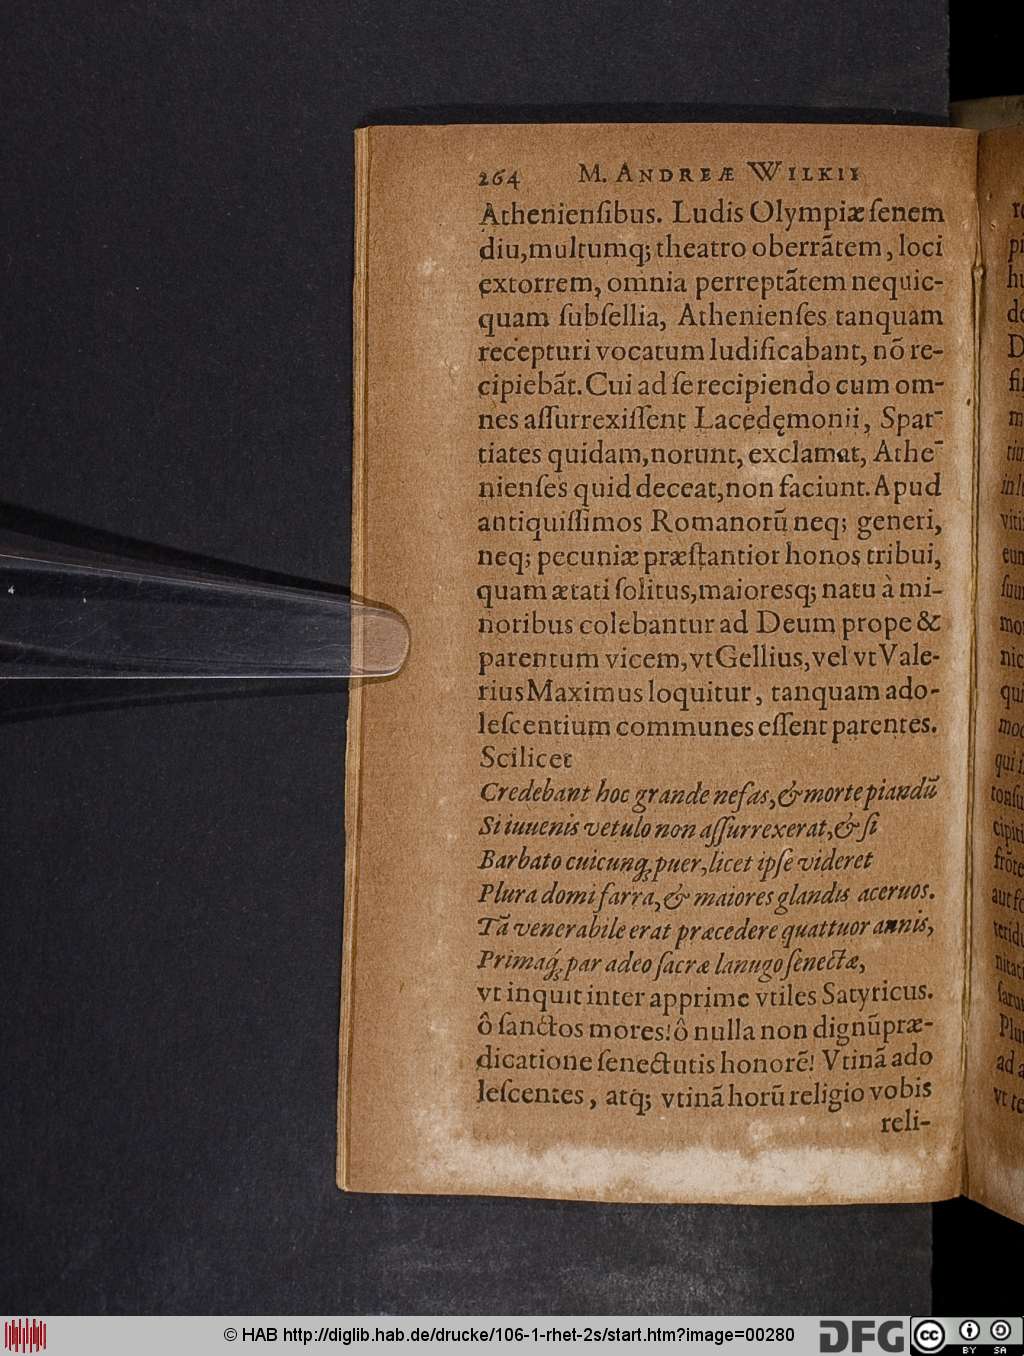 264 M. ANDREÆ WILKII
Athenienſibus. Ludis Olympiæ ſenem
diu, multumq; theatro oberrãtem, loci
extorrem, omnia perreptãtem nequic-
quam ſubſellia, Athenienſes tanquam
recepturi vocatum ludificabant, nõ re-
cipiebãt. Cui ad ſe recipiendo cum om-
nes aſſurrexiſſent Lacedęmonii, Spar-
tiates quidam, norunt, exclamat, Athe-
nienſes quid deceat, non faciunt. Apud
antiquiſſimos Romanorũ neq; generi,
neq; pecuniæ præſtantior honos tribui,
quam ætati ſolitus, maioresq; natu à mi-
noribus colebantur ad Deum prope &
parentum vicem, vt Gellius, vel vt Vale-
rius Maximus loquitur, tanquam ado-
leſcentium communes eſſent parentes.
Scilicet
Credebant hoc grande nefas, & morte piandũ
Si iuuenis vetulo non aſſurrexerat, & ſi
Barbato cuicunq; puer, licet ipſe videret
Plura domi farra, & maiores glandis aceruos.
Tã venerabile erat præcedere quattuor annis,
Primaq́; par adeo ſacræ lanugo ſenectæ,
vt inquit inter apprime vtiles Satyricus.
ô ſanctos mores! ô nulla non dignũ præ-
dicatione ſenectutis honorẽ! Vtinã ado
leſcentes, atq́; vtinã horũ religio vobis
reli-
re
pi
hu
de
D
fi
m
tiu
in l
viti
eun
ſuu
mo
nic
qui
mod
qui i
tonſu
cipiti
frõte
aut fo
teridu
nitati
ſarun
Plu
ad a
vt te
© HAB http://diglib.hab.de/drucke/106-1-rhet-2s/start.htm?image=00280
DFG
cc
BY SA